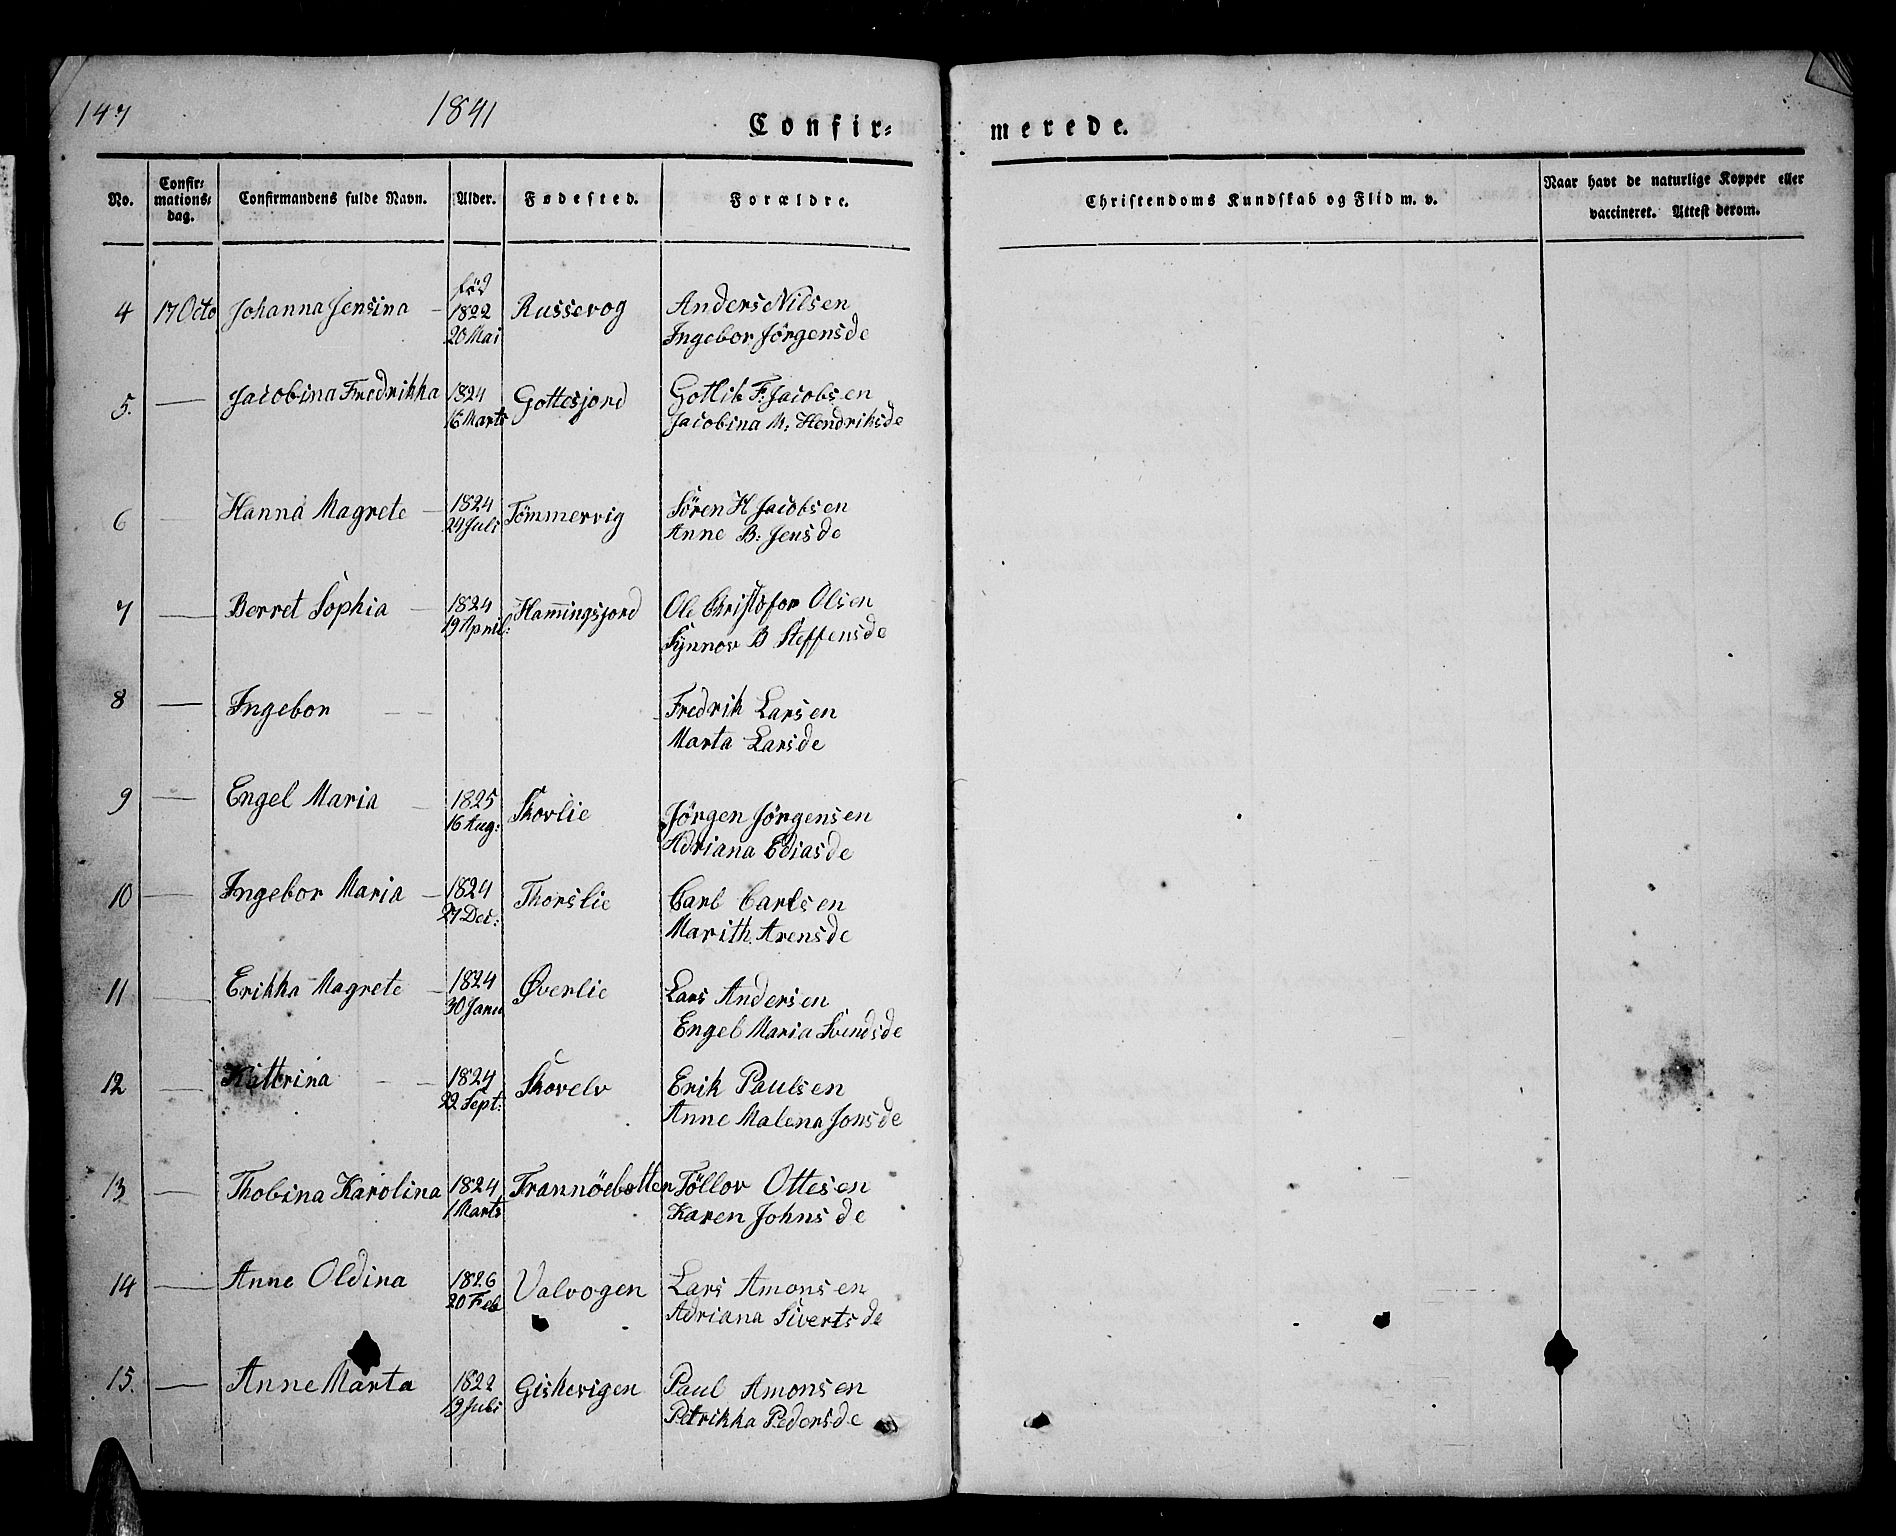 147 1841 Confir= merede.
No. Confir= mations= dag. Confirmandens fulde Navn. Alder. Fødested. Forældre. Christendoms Kundskab og Flid m. v. Naar havt de naturlige Kopper eller vaccineret. Attest derom.
fød
4 17 Octo Johanna Jensina – 1822 Russevog Anders Nilsen
20 Mai Ingebor Jörgensde
5. — Jacobina Fredrikka 1824 Gottesjord Gotlib F: Jacobsen
16 Marts Jacobina M: Hendriksde
6 — Hanna Magrete – 1824 Tömmervig Sören H Jacobsen
24 Juli Anne B: Jensde
7 — Berret Sophia – 1824 Hamingsjord Ole Christofor Olsen
19 April: Synnov B Steffensde
8 — Ingebor – – Fredrik Larsen
Marta Larsde
9 — Engel Maria – 1825 Skovlie Jörgen Jörgensen
16 Aug: Adriana Ediasde
10 — Ingebor Maria – 1824 Thorslie Carl Carlsen
27 Dec: Marith Arensde
11 — Erikka Magrete – 1824 Øverlie Lars Andersen
30 Janu Engel Maria Svendsde
12 — Kattrina – – 1824 Skovelv Erik Paulsen
22 Sept: Anne Malena Jonsde
13 — Thobina Karolina 1824 Trannöebotten Töllov Ottesen
1 Marts Karen Johnsde
14 — Anne Oldina 1826 Valvogen Lars Amonsen
20 Feb Adriana Sivertsde
15. — Anne Marta 1822 Giskevigen Paul Amonsen
19 Juli Petrikka Pedersde